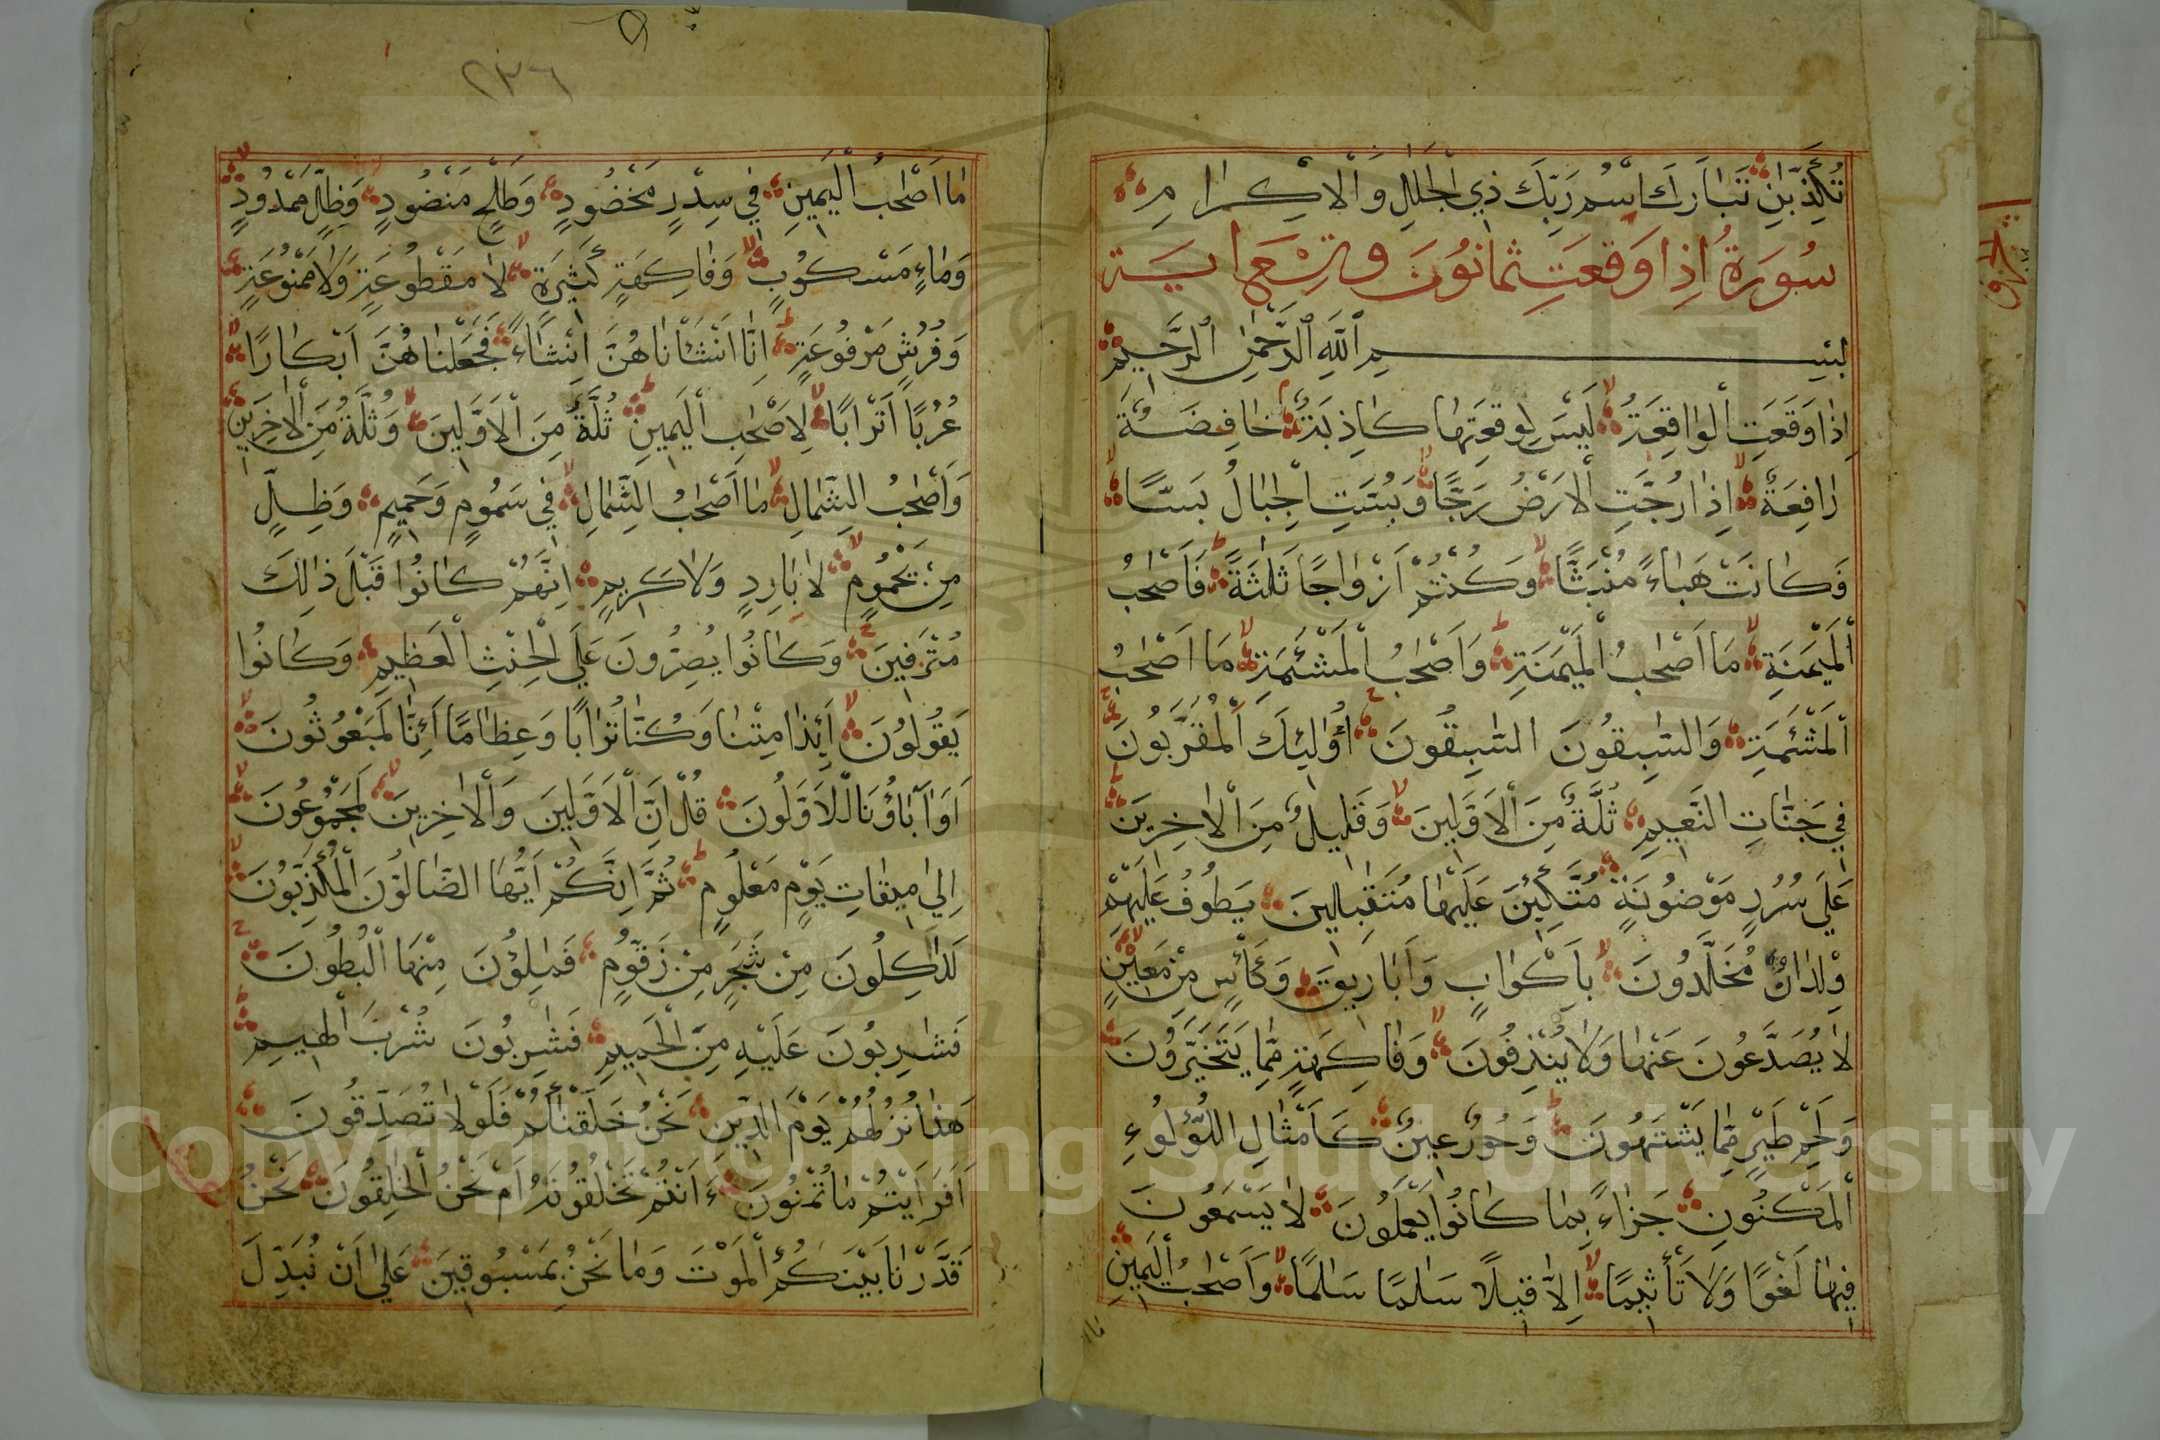 تُكَذِّبَانِ تَبَارَكَ اسْمُ رَبِّكَ ذِي الْجَلَالِ وَالْاِكْرَامِ
سُورَةُ اِذَا وَقَعَتِ ثمانُونَ وتِسْعَ ايَـة
بسْـــمِ اللّٰهِ الرَّحْمٰنِ الرَّحِيمِ
اِذَا وَقَعَتِ الْوَاقِعَةُ لَيْسَ لِوَقْعَتِهَا كَاذِبَةٌ خَافِضَةٌ
رَافِعَةٌ اِذَا رُجَّتِ الْاَرْضُ رَجًّا وَبُسَّتِ الْجِبَالُ بَسًّا
فَكَانَتْ هَبَاءً مُنْبَثًّا وَكُنْتُمْ اَزْوَاجًا ثَلٰثَةً فَاَصْحَابُ
الْمَيْمَنَةِ مَا اَصْحَابُ الْمَيْمَنَةِ وَاَصْحَابُ الْمَشْئَمَةِ مَا اَصْحَابُ
الْمَشْئَمَةِ وَالسَّبِقُونَ السَّبِقُونَ اُولٰئِكَ الْمُقَرَّبُونَ
فِي جَنَّاتِ النَّعِيمِ ثُلَّةٌ مِنَ الْاَوَّلِينَ وَقَلِيلٌ مِنَ الْاٰخِرِينَ
عَلَى سُرُرٍ مَوْضُونَةٍ مُتَّكِئِينَ عَلَيْهَا مُتَقَبِلِينَ يَطُوفُ عَلَيْهِمْ
وِلْدَانٌ مُخَلَّدُونَ بِاَكْوَابٍ وَاَبَارِيقَ وَكَأْسٍ مِنْ مَعِينٍ
لَا يُصَدَّعُونَ عَنْهَا وَلَا يُنْزِفُونَ وَفَاكِهَةٍ مِمَّا يَتَخَيَّرُونَ
وَلَحْمِ طَيْرٍ مِمَّا يَشْتَهُونَ وَحُورٌ عِينٌ كَاَمْثَالِ اللُّؤْلُوءِ
الْمَكْنُونِ جَزَاءً بِمَا كَانُوا يَعْمَلُونَ لَا يَسْمَعُونَ
فِيهَا لَغْوًا وَلَا تَأْثِيمًا اِلَّا قِيلًا سَلَامًا سَلَامًا وَاَصْحَابُ الْيَمِينِ
ما ا
٢٣٦
مَا اَصْحَابُ الْيَمِينِ فِي سِدْرٍ مَخْضُودٍ وَطَلْحٍ مَنْضُودٍ وَظِلٍّ مَمْدُودٍ
وَمَاءٍ مَسْكُوبٍ وَفَاكِهَةٍ كَثِيرَةٍ لَا مَقْطُوعَةٍ وَلَا مَمْنُوعَةٍ
وَفُرُشٍ مَرْفُوعَةٍ اِنَّا اَنْشَأْنَاهُنَّ اِنْشَاءً فَجَعَلْنَاهُنَّ اَبْكَارًا
عُرُبًا اَتْرَابًا لِاَصْحَابِ الْيَمِينِ ثُلَّةٌ مِنَ الْاَوَّلِينَ وَثُلَّةٌ مِنَ الْاٰخِرِينَ
وَاَصْحَابُ الشِّمَالِ مَا اَصْحَابُ الشِّمَالِ فِي سَمُومٍ وَحَمِيمٍ وَظِلٍّ
مِنْ يَحْمُومٍ لَا بَارِدٍ وَلَا كَرِيمٍ اِنَّهُمْ كَانُوا قَبْلَ ذَالِكَ
مُتْرَفِينَ وَكَانُوا يُصِرُّونَ عَلَى الْحِنْثِ الْعَظِيمِ وَكَانُوا
يَقُولُونَ اَئِذَا مِتْنَا وَكُنَّا تُرَابًا وَعِظَامًا اَئِنَّا لَمَبْعُوثُونَ
اَوَاٰبَاؤُنَا الْاَوَّلُونَ قُلْ اِنَّ الْاَوَّلِينَ وَالْاٰخِرِينَ لَمَجْمُوعُونَ
اِلَى مِيقَاتِ يَوْمٍ مَعْلُومٍ ثُمَّ اِنَّكُمْ اَيُّهَا الضَّالُّونَ الْمُكَذِّبُونَ
لَاٰكِلُونَ مِنْ شَجَرٍ مِنْ زَقُّومٍ فَمٰلِؤُنَ مِنْهَا الْبُطُونَ
فَشَارِبُونَ عَلَيْهِ مِنَ الْحَمِيمِ فَشَرِبُونَ شُرْبَ الْهِيمِ
هَذَا نُزُلُهُمْ يَوْمَ الدِّينِ نَحْنُ خَلَقْنَاكُمْ فَلَوْلَا تُصَدِّقُونَ
اَفَرَاَيْتُمْ مَا تُمْنُونَ ءَاَنْتُمْ تَخْلُقُونَهُ اَمْ نَحْنُ الْخٰلِقُونَ نَحْنُ
قَدَّرْنَا بَيْنَكُمُ الْمَوْتَ وَمَا نَحْنُ بِمَسْبُوقِينَ عَلَى اَنْ نُبَدِّلَ
Copyright © King Saud University